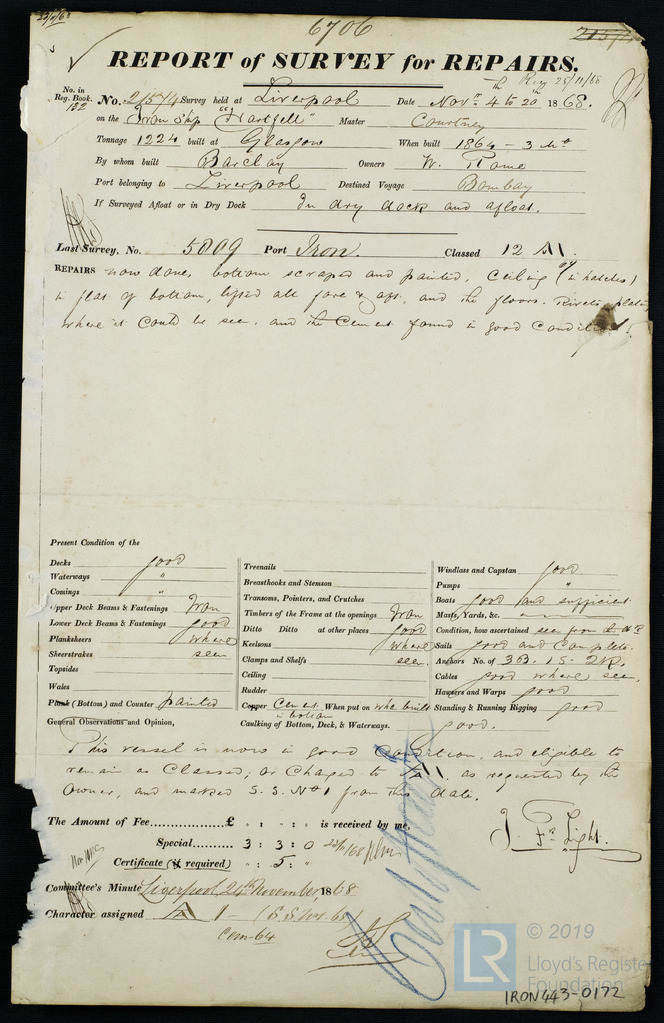 6706
REPORT of SURVEY for REPAIRS.
Reg 25/11/68
No. in Reg. Book. 132 No. 21574 Survey held at Liverpool Date Novr. 4th to 20th 1868.
on the Iron Ship "Hartfell" Master Courtney
Tonnage 1224 built at Glasgow When built 1864 - 3 Mo
By whom built Barclay Owners W.
Port belonging to Liverpool Destined Voyage Bombay
If Surveyed Afloat or in Dry Dock In dry dock and afloat.
Last Survey, No. 5009 Port Iron. Classed 12 A1.
REPAIRS now done, bottom scraped and painted, Ceiling (in hatches)
in flat of bottom, lifted all fore & aft, and the floors. Rivets, plates
where it could be seen. and the Cement found in good Condition.
Present Condition of the
Decks good
Waterways "
Comings "
Upper Deck Beams & Fastenings Iron
Lower Deck Beams & Fastenings good
Planksheers where
Sheerstrakes seen
Topsides
Wales
Plank (Bottom) and Counter painted
Treenails
Breasthooks and Stemson
Transoms, Pointers, and Crutches
Timbers of the Frame at the openings Iron
Ditto Ditto at other places good
Keelsons where
Clamps and Shelfs seen.
Ceiling
Rudder
Copper Cement When put on when built
in bottom
Caulking of Bottom, Deck, & Waterways. good.
Windlass and Capstan good
Pumps "
Boats good and sufficient
Masts, Yards, &c.
Condition, how ascertained seen from the
Sails good and Complete.
Anchors No. of 3B. 1S. 2K.
Cables good where seen.
Hawsers and Warps good
Standing & Running Rigging good
General Observations and Opinion,
This vessel is now in good Condition, and eligible to
remain as Classed, or Changed to A1. as requested by the
Owner, and marked S.S. No 1 from this date.
The Amount of Fee £ " : " : " is received by me,
Special 3 : 3 : 0
Certificate (if required) " : 5 : "
J. Fr. Light.
Committee's Minute Liverpool 24th November, 1868
Character assigned A 1 - (S.S. Lvl. 68)
Cem-64
© 2019
LR Lloyd's Register
Foundation
IRON443-0172